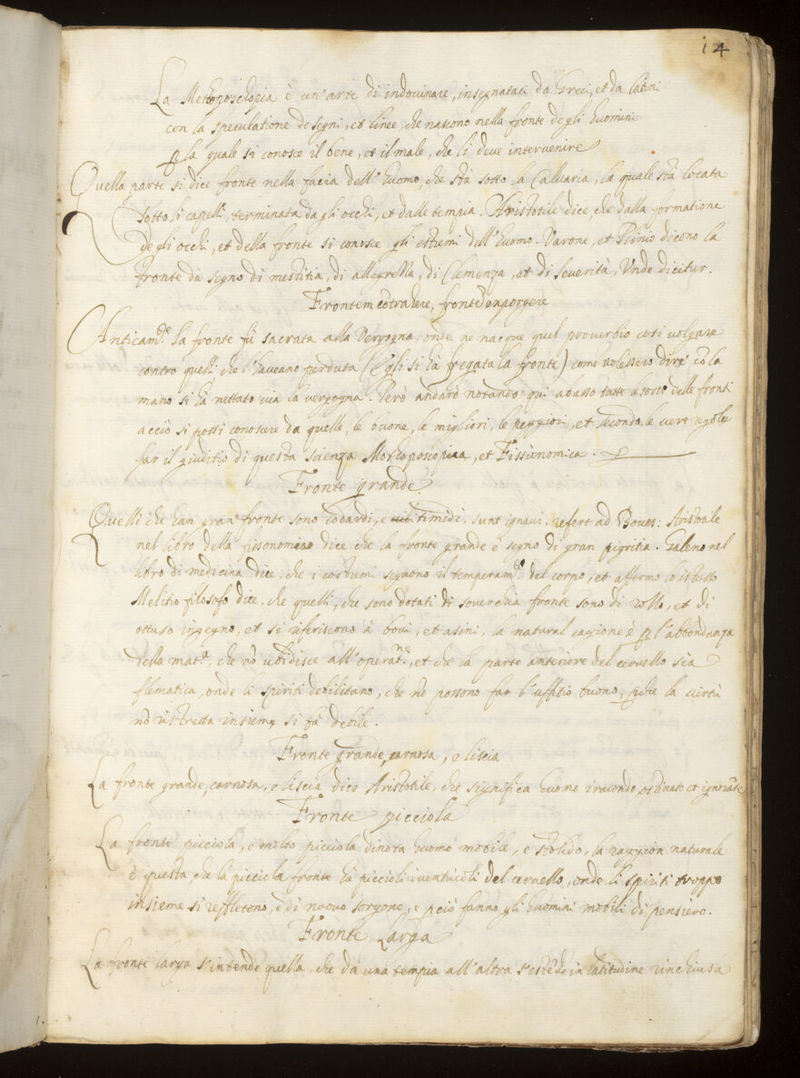 14
La Mettoposcopia è un'arte di indovinare, insegnataci da Greci, et da latini
con la speculatione de segni, et linee, che nascono nella fronte degli huomini
p la quale si conosce il bene, et il male, che li deve intervenire
Quella parte si dice fronte nella facia dell'huomo, che stà sotto la Calvaria, la quale stà locata
sotto li capelli, terminata da gli occhi, et dalle tempia. Aristotile dice, che dalla formatione
de gli occhi, et della fronte si conosce gli estremi dell'huomo. Varone, et Plinio dicono la
fronte dà segno di mestitia, di allegrezza, di Clemenza, et di severità, Unde dicitur.
Frontem cõtrahere, frontẽ exporgere
Anticam.te la fronte fù sacrata alla Vergogna, onde ne nacque quel proverbio così volgare
contro quelli che l'haveano perduta (Egli si hà fregata la fronte) come volessero dire cõ la
mano si hà nettato via la vergogna. Però andarò notando qui abasso tutte le sorte delle fronti
acciò si possi conoscere da quelle, le buone, le migliori, le peggiori, et secondo le vere regole
far il giuditio di questa scienza Mettoposcopica, et Fissionomica.
Fronte grande
Quelli che han gran fronte sono codardi, e timidi, sunt ignavi. refert ad Boves: Aristotile
nel libro della fissonomia dice che la fronte grande è segno di gran pigritia. Galeno nel
libro di medicina dice. che i costumi seguono il temperam.to del corpo, et afferma lo istesso
Melitio filosofo dice. che quelli, che sono dotati di soverchia fronte sono di rozzo, et di
ottuso ingegno, et si riferiscono à bovi, et asini, la natural cagione è p l'abbondanza
della mat.a, che nõ ubidisce all'operat.ne, et che la parte anteriore del cervello sia
flematica, onde li spiriti debilitano, che nõ possono far l'uffitio buono, pche la virtù
nõ ristretta insieme si fà debile.
Fronte grande, carnosa, e liscia
La fronte grande, carnosa, e liscia dice Aristotile, che significa huomo iracondo, ostinato et ignorãte
Fronte picciola
La fronte picciola, e molto picciola dinota huomo mobile, e stolido, la raggion naturale
è questa, che la picciola fronte hà piccioli i ventricoli del cervello, onde li spiriti troppo
insieme si reflettono, e di nuovo sorgono, e pciò fanno gli huomini mobili di pensiero.
Fronte Larga
La fronte larga s'intende quella, che dà una tempia all'altra s'estẽde in latitudine rinchiusa